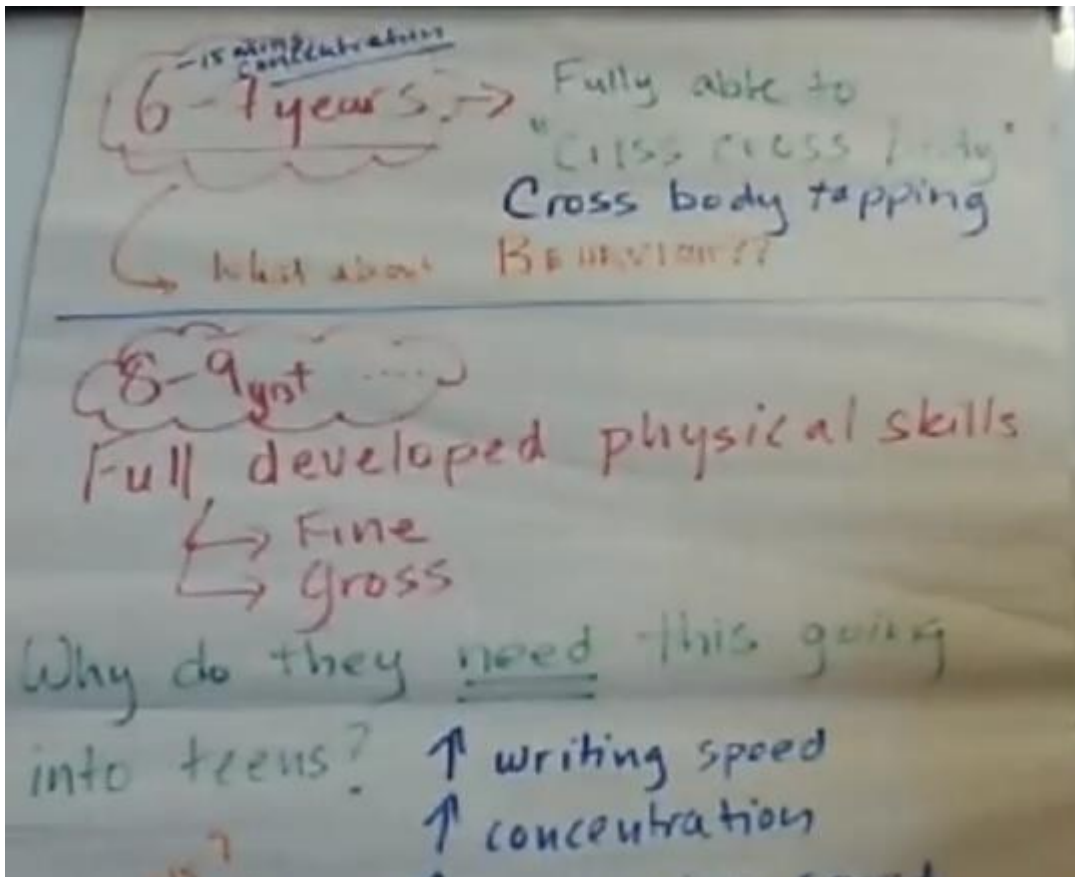 -15 mins
concentration
6-7 years. → Fully able to
"Criss cross body"
Cross body tapping
What about BEHAVIOUR??
8-9 yrs+ ....
Full developed physical skills
→ Fine
→ gross
Why do they need this going
into teens? ↑ writing speed
↑ concentration